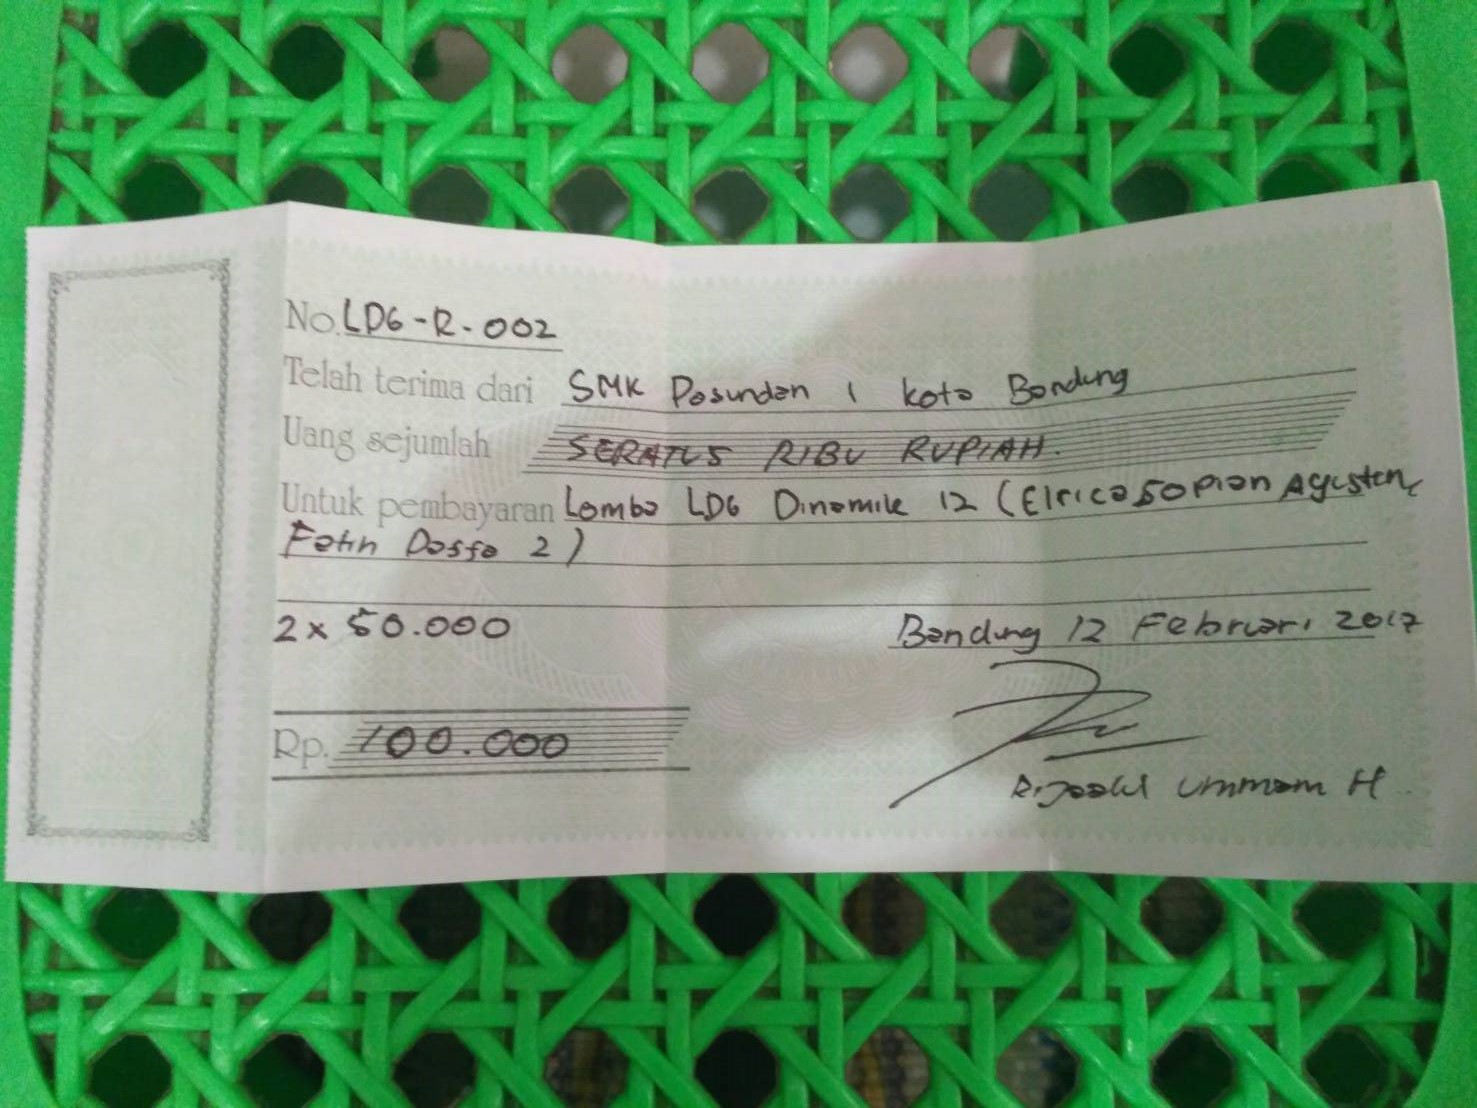 No. LDG-R-002
Telah terima dari SMK Pasundan 1 Kota Bandung
Uang sejumlah SERATUS RIBU RUPIAH.
Untuk pembayaran Lomba LDG Dinamik 12 (Elrica Sopian Agusten,
Fatin Daffa 2)
2 x 50.000
Bandung 12 Februari 2017
Rp. 100.000
Ummam H